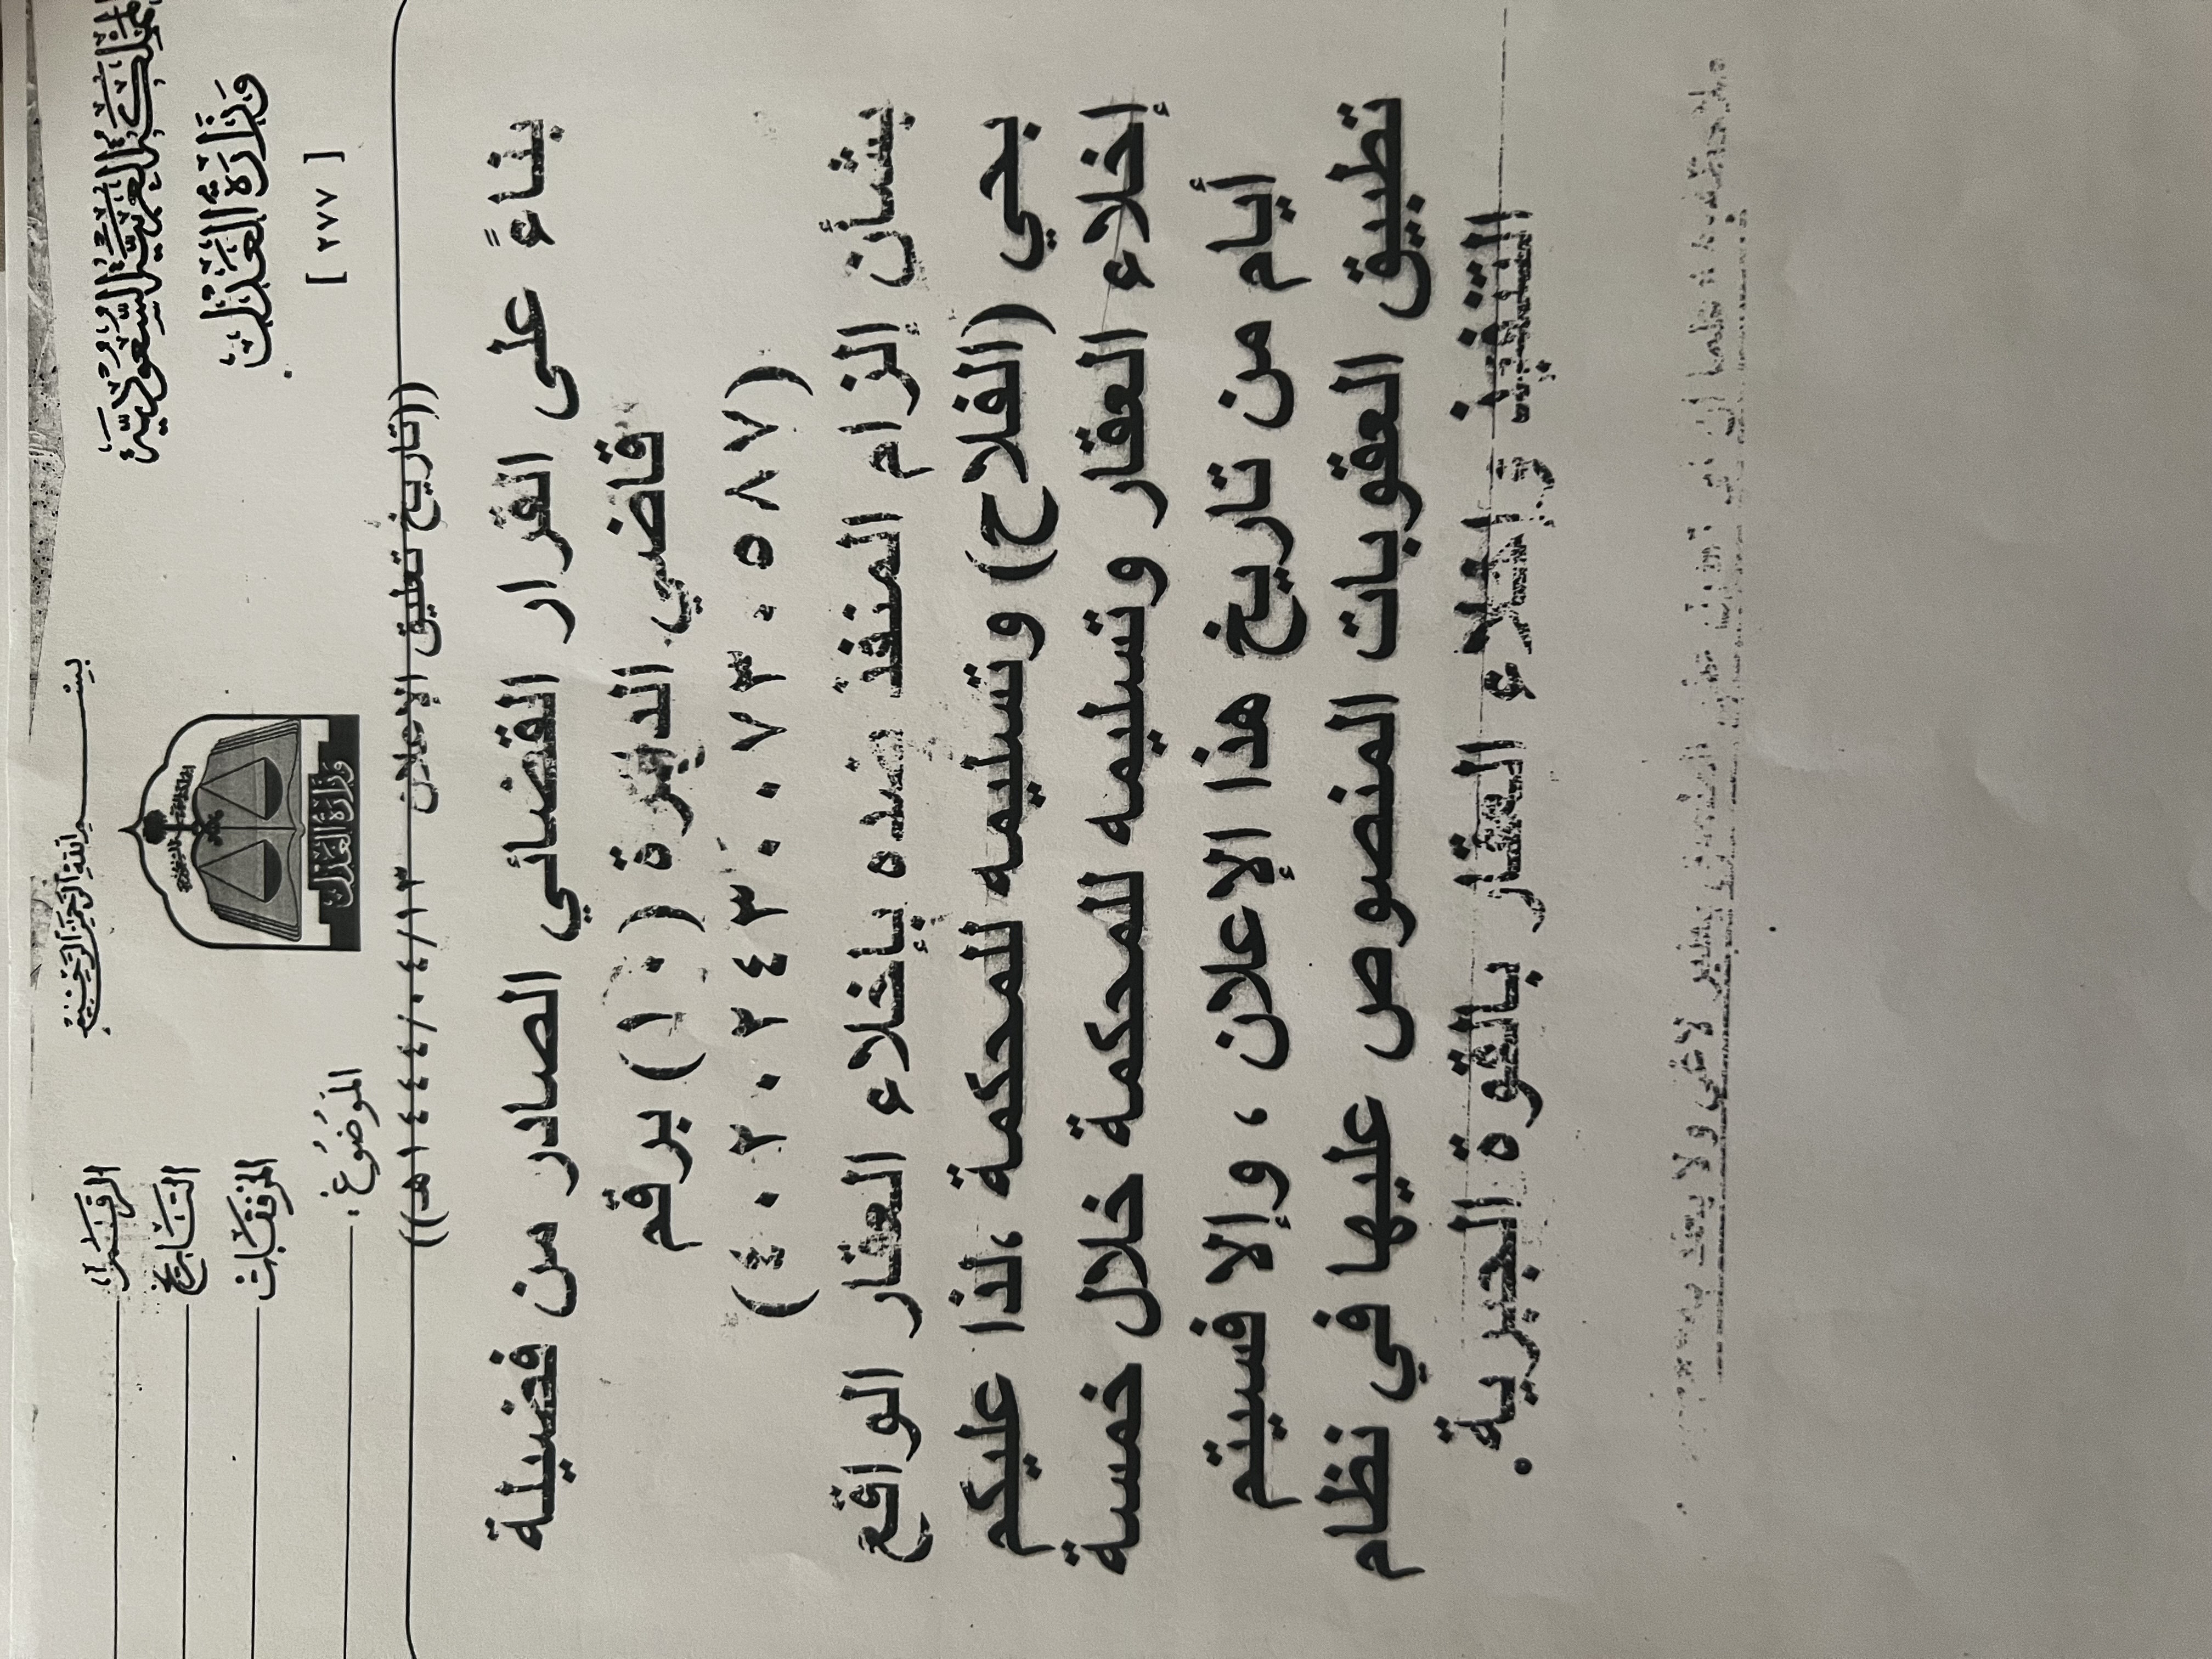 بِسْــــمِ اللهِ الرَّحْمَنِ الرَّحِيمِ
المملكة العربية السعودية
وزارة العدل
[ ٢٧٧ ]
وزارة العدل
الرقم
التاريخ
المرفقات
الموضوع :
((تاريخ تعليق الإعلان ١٤٤٤/٠٤/١٣هـ))
بناءً على القرار القضائي الصادر من فضيلة
قاضي الدائرة (١٠) برقم
(٤٠٢٠٢٤٣٠٠٧٣٠٥٨٧)
بشأن إلزام المنفذ ضده بإخلاء العقار الواقع
بحي (الفلاح) وتسليمه للمحكمة ،لذا عليكم
إخلاء العقار وتسليمه للمحكمة خلال خمسة
أيام من تاريخ هذا الإعلان ، وإلا فسيتم
تطبيق العقوبات المنصوص عليها في نظام
التنفيذ وإخلاء العقار بالقوة الجبرية.